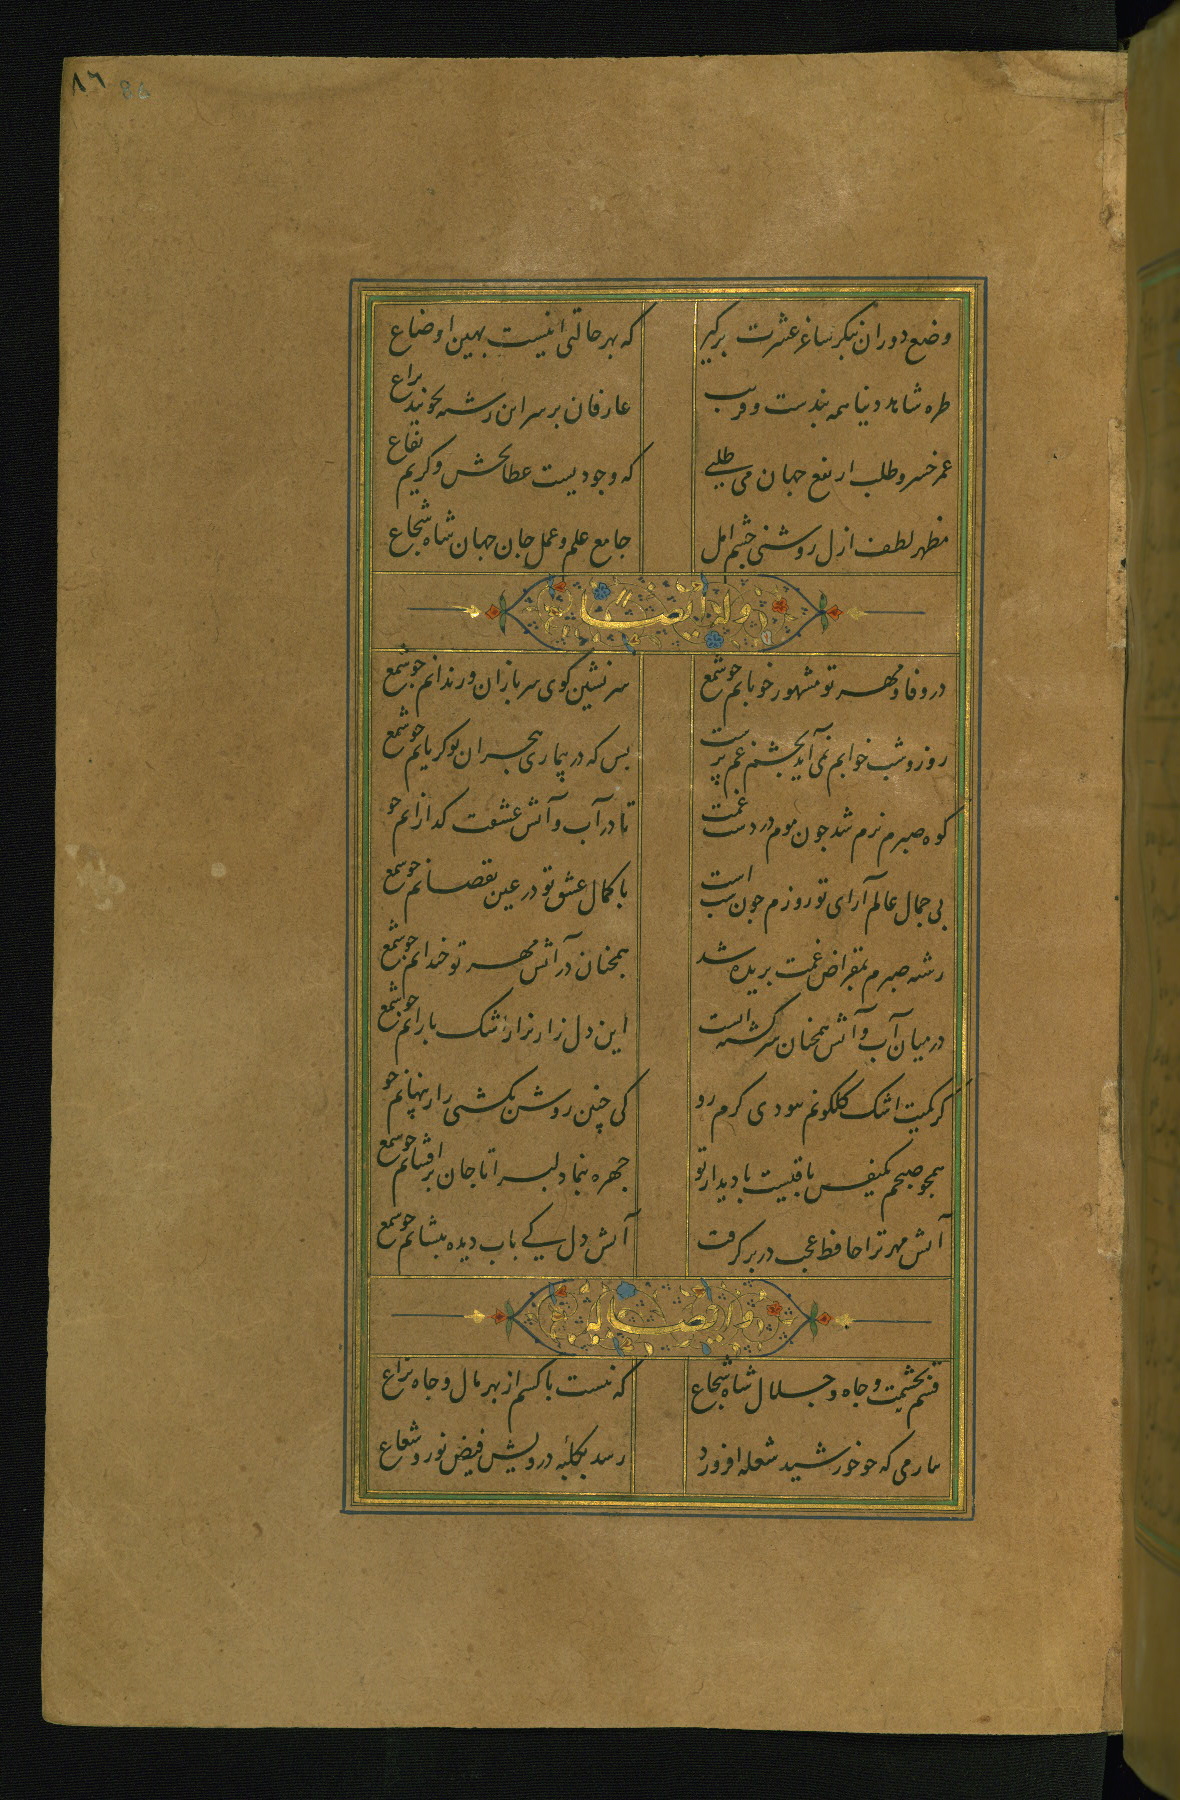 ٨٦
وضع دوران بنکر ساغر عشرت برکیر
که بهر حالتی اینست بهین اوضاع
طره شاهد دنیا همه بندست و فریب
عارفان بر سر این رشته نجویند نزاع
عمر خسرو طلب ار نفع جهان می طلبی
که وجودیست عطابخش و کریم نفاع
مظهر لطف ازل روشنی چشم امل
جامع علم و عمل جان جهان شاه شجاع
وله ایضا
در وفا و مهر تو مشهور خوبانم جو شمع
سر نشین کوی سربازان و رندانم جو شمع
روز و شب خوابم نمی آید بچشم غم پرست
بس که در بیماری هجران تو کریانم جو شمع
کوه صبرم نرم شد جون موم در دست غمت
تا در آب و آتش عشقت کدازانم جو
بی جمال عالم آرای تو روزم جون شب است
با کمال عشق تو در عین نقصانم جو شمع
رشته صبرم بمقراض غمت بریده شد
همچنان در آتش مهر تو خندانم جو شمع
در میان آب و آتش همچنان سرکشته است
این دل زار نزار اشک بارانم جو شمع
کر کمیت اشک کلکونم نبودی کرم رو
کی چنین روشن بکشتی راز پنهانم جو
همجو صبحم یکنفس باقیست با دیدار تو
جهره بنما دلبرا تا جان برافشانم جو شمع
آتش مهر ترا حافظ عجب در بر کرفت
آتش دل کی باب دیده بنشانم جو شمع
وله ایضا
قسم بحشمت و جاه و جلال شاه شجاع
که نیست با کسم از بهر مال و جاه نزاع
بیار می که جو خورشید شعله افروزد
رسد بکلبه درویش فیض نور و شعاع